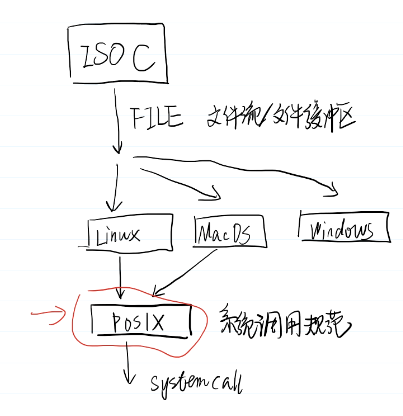 ISO C
FILE 文件流/文件缓冲区
Linux MacOS Windows
POSIX 系统调用规范
system call